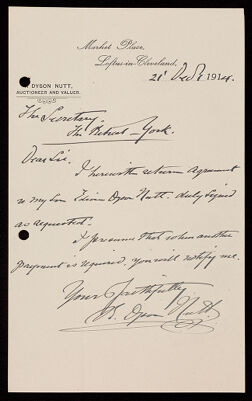 Market Place,
Loftus-in-Cleveland,
DYSON NUTT,
AUCTIONEER AND VALUER.
21st Decr 1914.
The Secretary,
The Retreat - York.
Dear Sir,
I herewith return Agreement
re my Son Edwin Dyson Nutt, duly signed
as requested.
I presume that when another
payment is required, you will notify me.
Yours Faithfully
D. Dyson Nutt